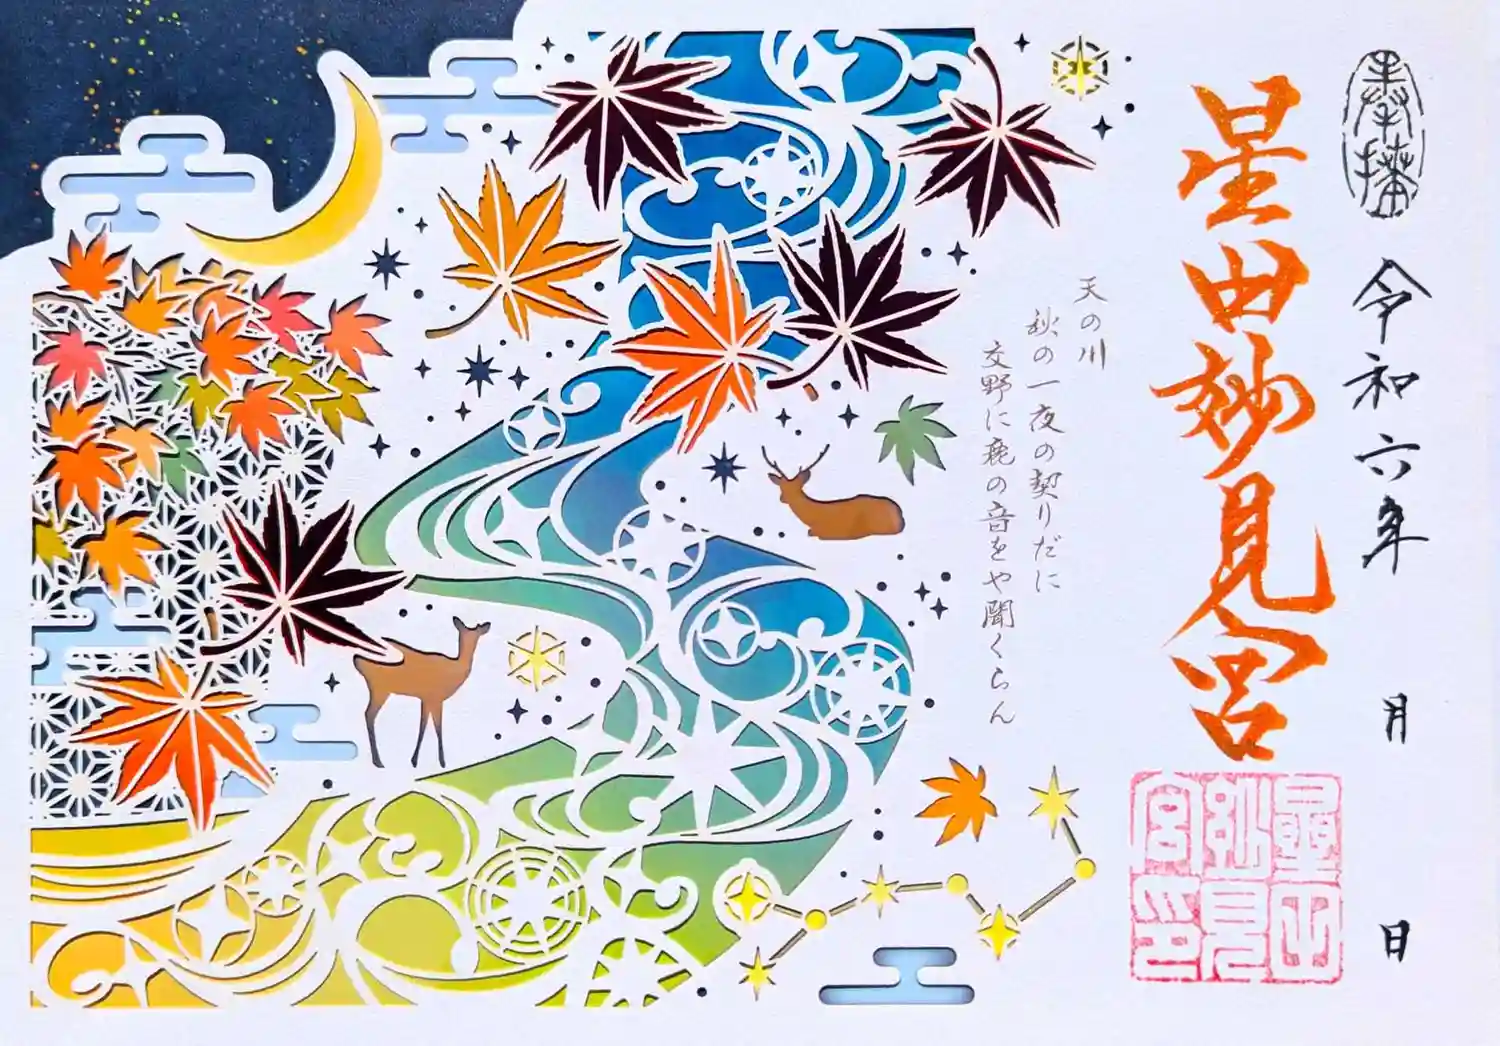 奉拝
令和六年 月 日
星田妙見宮
星田妙見宮印
天の川
秋の一夜の契りだに
交野に鹿の音をや聞くらん